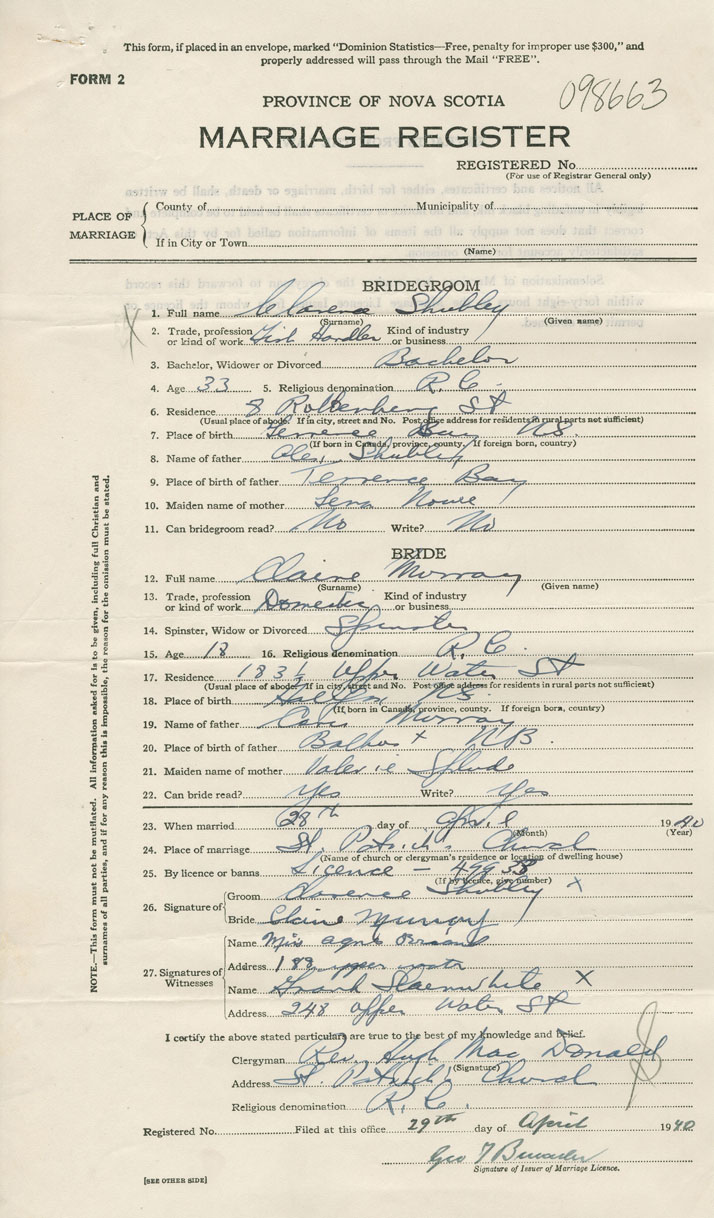 This form, if placed in an envelope, marked "Dominion Statistics—Free, penalty for improper use $300," and
properly addressed will pass through the Mail "FREE".
FORM 2
098663
PROVINCE OF NOVA SCOTIA
MARRIAGE REGISTER
REGISTERED No.
(For use of Registrar General only)
PLACE OF MARRIAGE
County of Municipality of
If in City or Town
(Name)
BRIDEGROOM
1. Full name Clarence Shubley
(Surname) (Given name)
2. Trade, profession or kind of work Fish Handler Kind of industry or business
3. Bachelor, Widower or Divorced Bachelor
4. Age 33 5. Religious denomination R. C.
6. Residence 8 St
(Usual place of abode. If in city, street and No. Post office address for residents in rural parts not sufficient)
7. Place of birth Terrence Bay NS.
(If born in Canada, province, county. If foreign born, country)
8. Name of father Shubley
9. Place of birth of father Terrence Bay
10. Maiden name of mother Lena
11. Can bridegroom read? No Write? No
BRIDE
12. Full name Elaine Murray
(Surname) (Given name)
13. Trade, profession or kind of work Domestic Kind of industry or business
14. Spinster, Widow or Divorced Spinster
15. Age 18 16. Religious denomination R. C.
17. Residence Upper Water St
(Usual place of abode, if in city, street and No. Post office address for residents in rural parts not sufficient)
18. Place of birth Halifax NS
(If born in Canada, province, county. If foreign born, country)
19. Name of father Murray
20. Place of birth of father N.B.
21. Maiden name of mother Valerie
22. Can bride read? Yes Write? Yes
23. When married 28th day of April 1940
(Month) (Year)
24. Place of marriage St. Patrick's Church
(Name of church or clergyman's residence or location of dwelling house)
25. By licence or banns Licence —
(If by licence, give number)
26. Signature of
Groom Clarence Shubley X
Bride Elaine Murray
27. Signatures of Witnesses
Name Miss agnes
Address upper water
Name Frank Slaenwhite X
Address 248 Upper Water St
I certify the above stated particulars are true to the best of my knowledge and belief.
Clergyman Rev. Hugh MacDonald
(Signature)
Address St. Patrick's Church
Religious denomination R. C.
Registered No. Filed at this office 29th day of April 1940
Geo
Signature of Issuer of Marriage Licence.
[SEE OTHER SIDE]
NOTE.—This form must not be mutilated. All information asked for is to be given, including full Christian and
surnames of all parties, and if for any reason this is impossible, the reason for the omission must be stated.